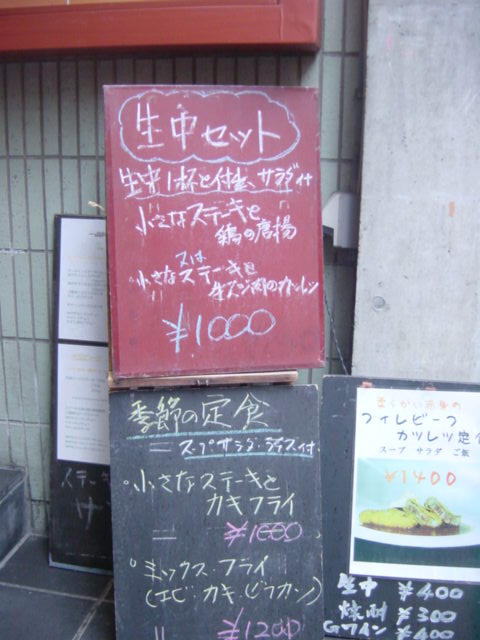 生中セット
生中1杯と付出、サラダ付
小さなステーキと
鶏の唐揚
又は
小さなステーキと
牛スジ肉のカットレツ
¥1000
季節の定食
=スープサラダ・ライス付
小さなステーキと
カキフライ
= ¥1000
ミックス・フライ
(エビ カキ ビフカツ)
= ¥1200
ステーキ
柔らかい赤身の
フィレビーフ
カツレツ定
スープ サラダ ご飯
¥1400
生中 ¥400
焼酎 ¥300
Gワイン ¥400